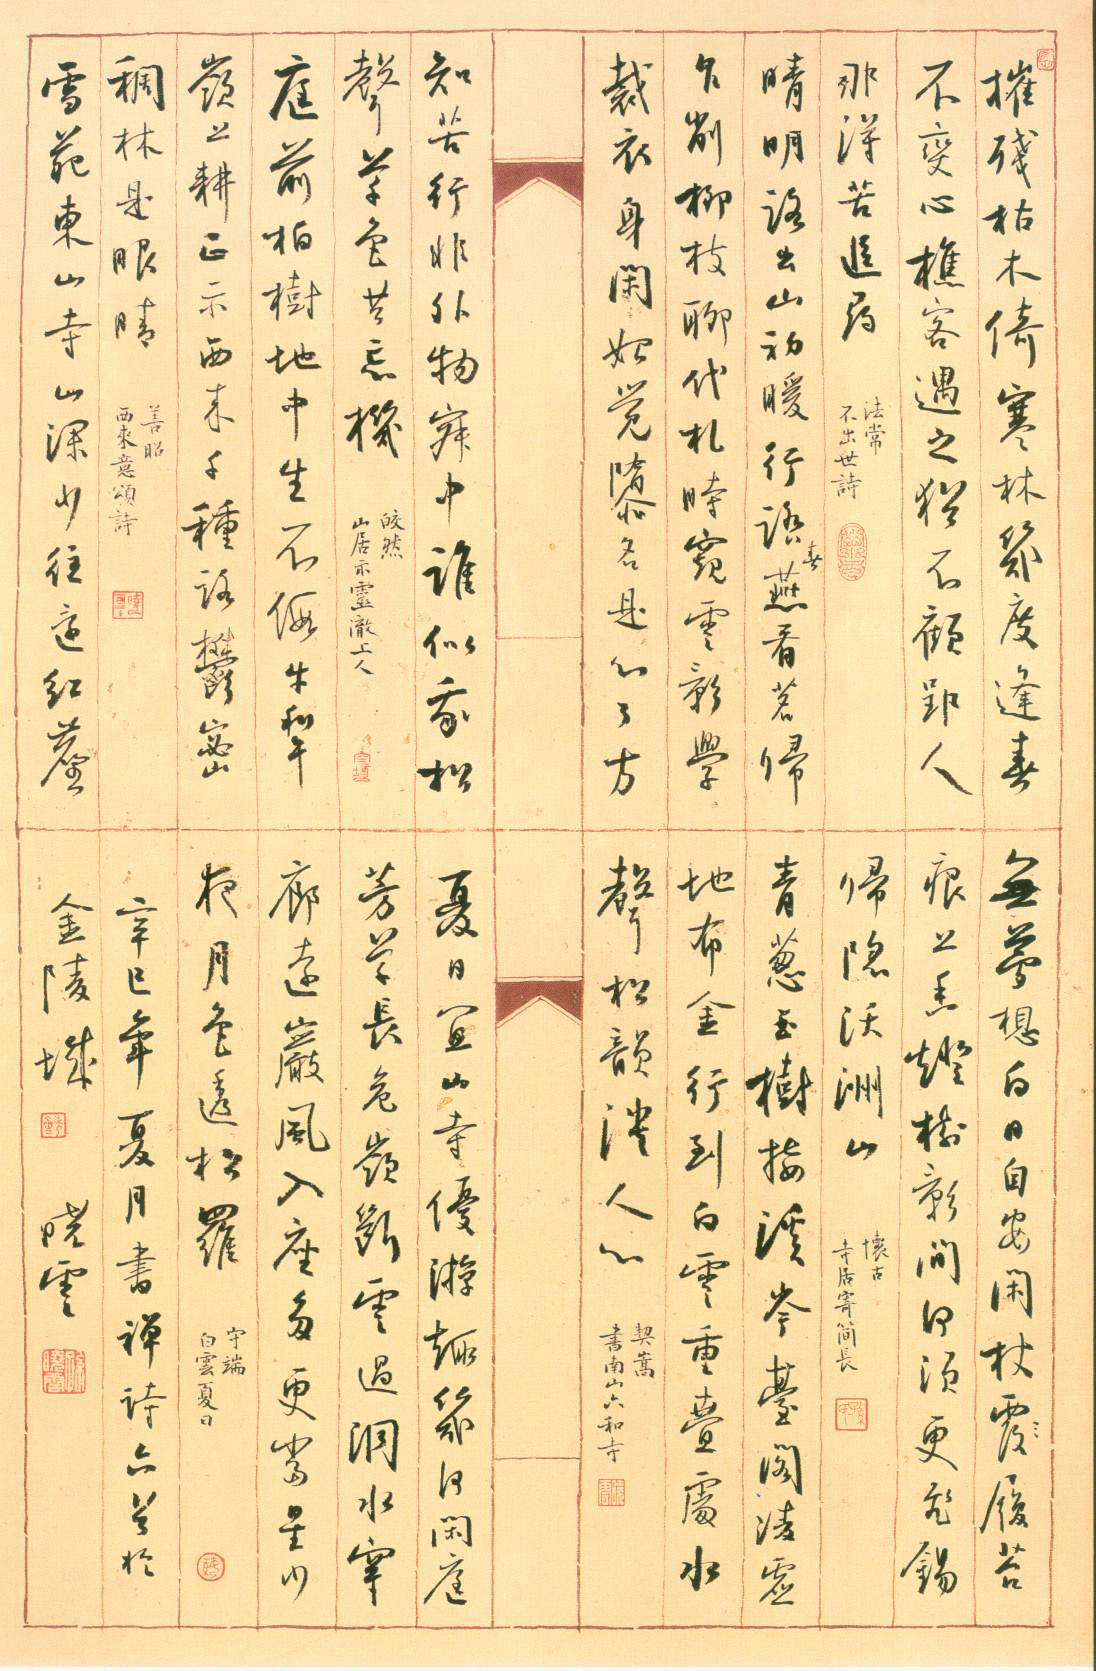 摧殘枯木倚寒林幾度逢春
不變心樵客遇之猶不顧郢人
那得苦追尋
法常
不出世詩
晴明路出山初暖行踏春蕪看茗歸
乍削柳枝聊代札時窺雲影學
裁衣身閑始覺隳名是心了方
知苦行非外物寂中誰似我松
聲草色共忘機
皎然
山居示靈澈上人
庭前柏樹地中生不假牛犁
嶺上耕正示西來千種路鬱密
稠林是眼睛
善昭
西來意頌詩
雪苑東山寺山深少往還紅塵
無夢想白日自安閑杖履苔
痕上香燈樹影間何須更飛錫
歸隱沃洲山
懷古
寺居寄簡長
青蔥玉樹接溪岑臺閣凌虛
地布金行到白雲重疊處水
聲松韻淡人心
契嵩
書南山六和寺
夏日宜山寺優游趣幾何閑庭
芳草長危嶺斷雲過洞水穿
廊遠巖風入座多更當星少
夜月色透松羅
守端
白雲夏日
辛巳年夏月書禪詩六首於
金陵城 曉雲